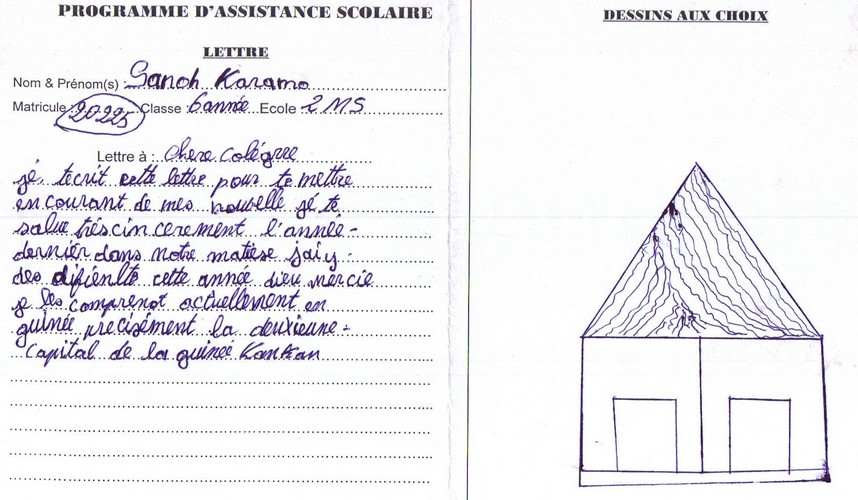 PROGRAMME D'ASSISTANCE SCOLAIRE
LETTRE
Nom & Prénom(s) : Sanoh Karamo
Matricule : 20225 Classe : 6 année Ecole : 2 MS
Lettre à : chere colégue
jé técrit cette lettre pour te mettre
en courant de mes nouvelle jé te
salue trés cin cerement l'année-
dernier dans notre matiese jaiy
des difienlté cette année dieu mercie
je les comprenot actuellement en
guinée precisément la deuxieune-
Capital de la guinée Kankan
DESSINS AUX CHOIX